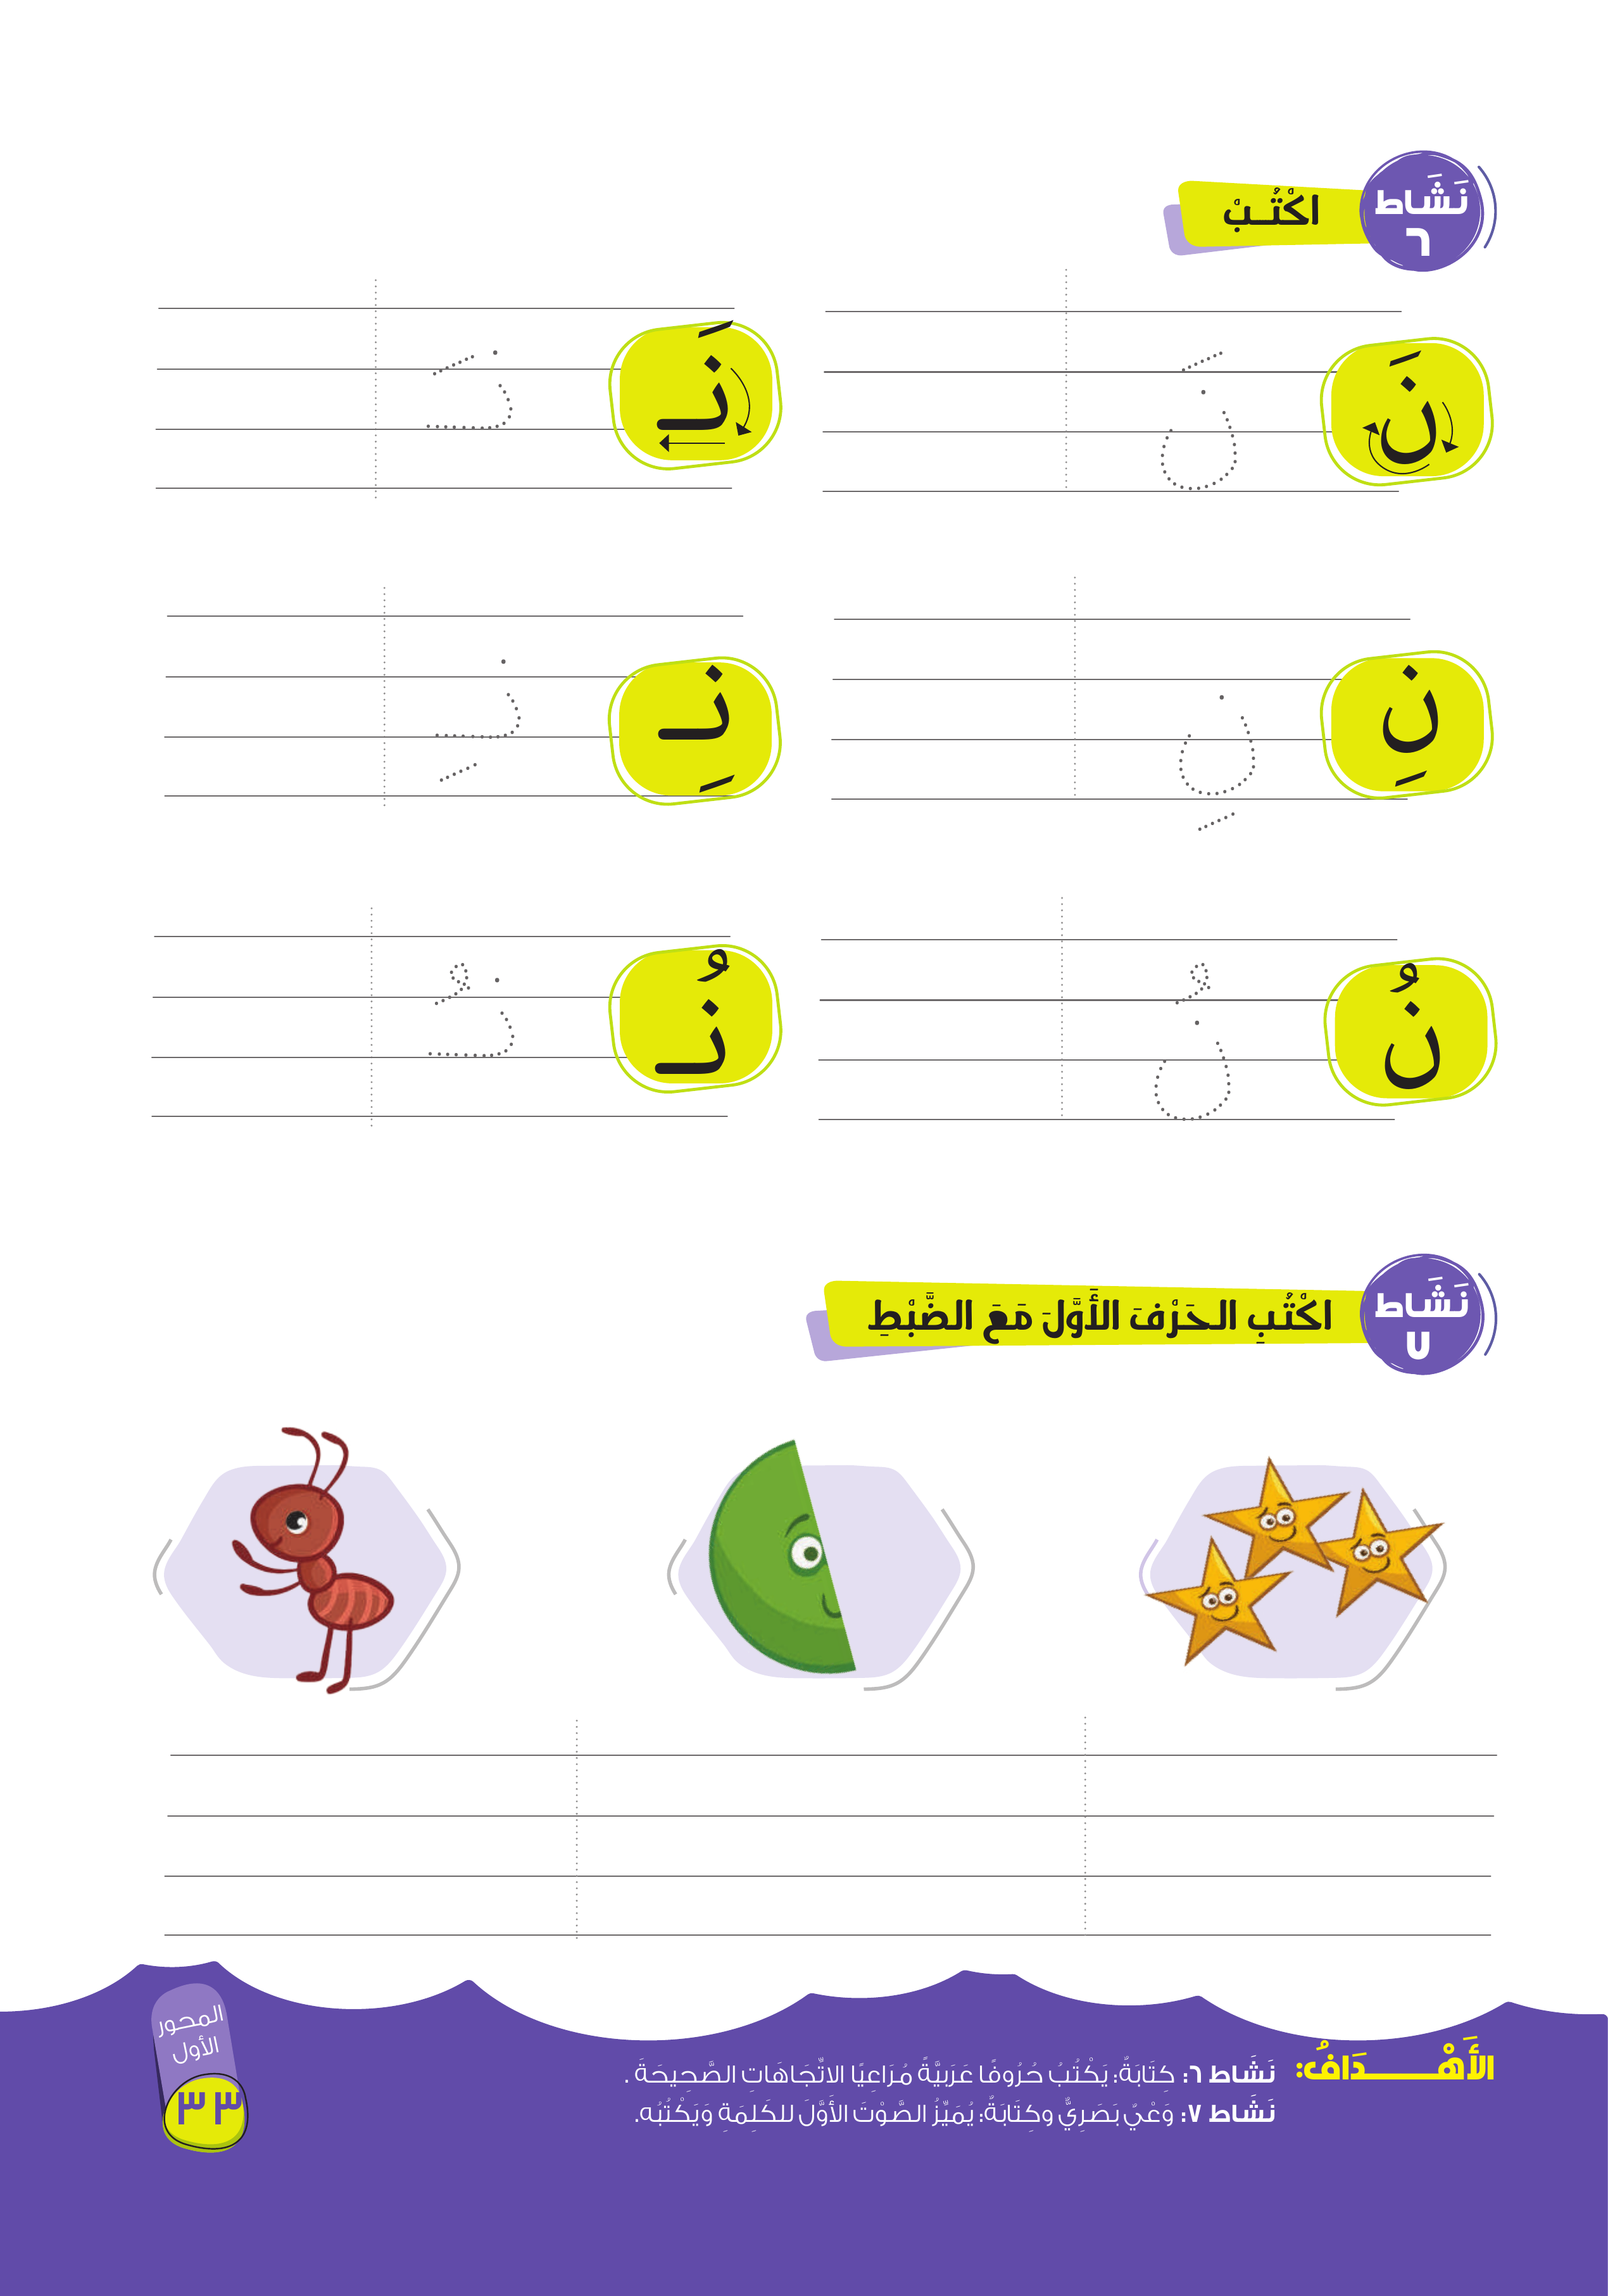 نَشَاط
٦
اكْتُبْ
نَ
نَـ
نِ
نِـ
نُ
نُـ
نَشَاط
٧
اكْتُبِ الحَرْفَ الأَوَّلَ مَعَ الضَّبْطِ
الأَهْـدَافُ:
نَشَاط ٦: كِتَابَةٌ: يَكْتُبُ حُرُوفًا عَرَبِيَّةً مُرَاعِيًا الاتِّجَاهَاتِ الصَّحِيحَةَ .
نَشَاط ٧: وَعْيٌ بَصَرِيٌّ وكِتَابَةٌ: يُمَيِّزُ الصَّوْتَ الأَوَّلَ للكَلِمَةِ وَيَكْتُبُه.
المحور
الأول
٣٣